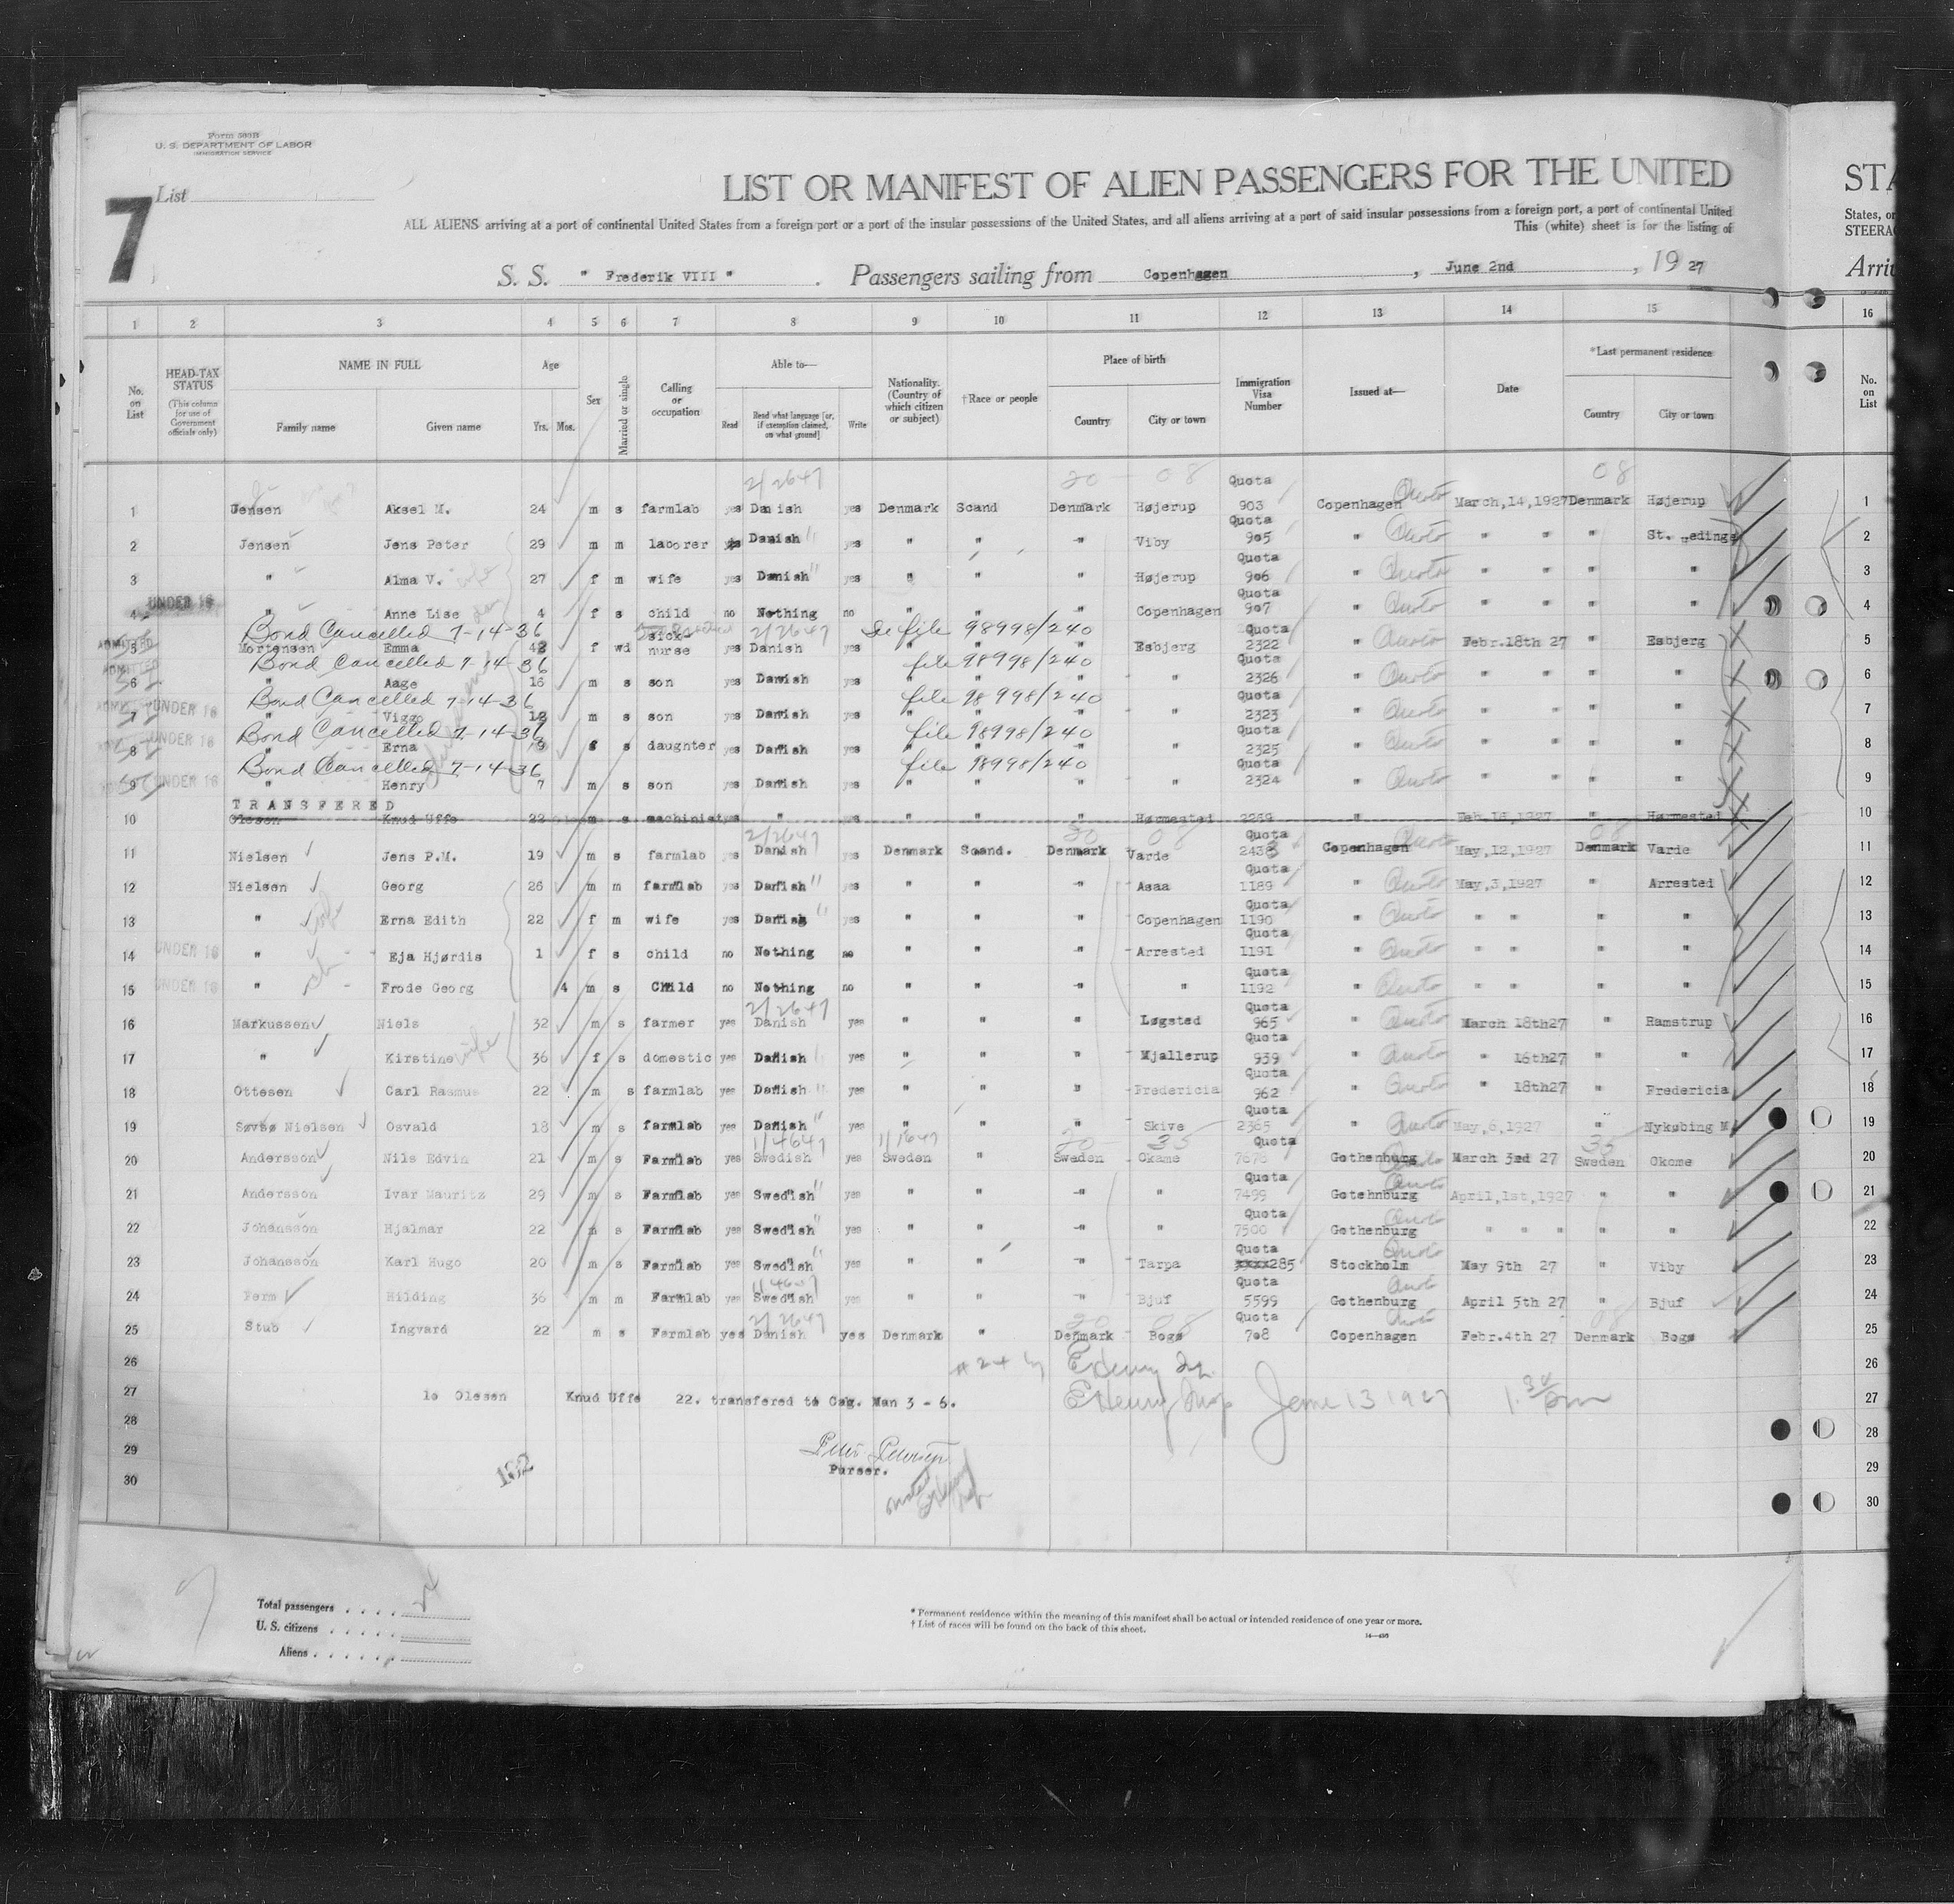 Form 500B
U. S. DEPARTMENT OF LABOR
IMMIGRATION SERVICE
7
List
LIST OR MANIFEST OF ALIEN PASSENGERS FOR THE UNITED
STA
ALL ALIENS arriving at a port of continental United States from a foreign port or a port of the insular possessions of the United States, and all aliens arriving at a port of said insular possessions from a foreign port, a port of continental United
States, or
This (white) sheet is for the listing of
STEERAG
S. S. " Frederik VIII " . Passengers sailing from Copenhagen , June 2nd , 19 27
Arri
1 2 3 4 5 6 7 8 9 10 11 12 13 14 15 16
No. on List
HEAD-TAX STATUS (This column for use of Government officials only)
NAME IN FULL Family name Given name
Age Yrs. Mos.
Sex
Married or single
Calling or occupation
Able to— Read Read what language [or, if exemption claimed, on what ground] Write
Nationality. (Country of which citizen or subject)
†Race or people
Place of birth Country City or town
Immigration Visa Number
Issued at—
Date
*Last permanent residence Country City or town
No. on List
2/2647 20 - 08 Quota 08
1 Jensen Aksel M. 24 m s farmlab yes Danish yes Denmark Scand Denmark Højerup 903 Copenhagen Quota March,14,1927 Denmark Højerup 1
Quota
2 Jensen Jens Peter 29 m m laborer yes Danish " yes " " " Viby 905 " Quota " " " St. 2
Quota
3 " Alma V. wife 27 f m wife yes Danish " yes " " " Højerup 906 " Quota " " " " 3
UNDER 16 Quota
4 " Anne Lise 4 f s child no Nothing no " " " Copenhagen 907 " Quota " " " " 4
Bond Cancelled 7-14-36 sick- 2/2647 See file 98998/240 Quota
ADMITTED 5 Mortensen Emma 42 f wd nurse yes Danish yes " " " Esbjerg 2322 " Quota Febr.18th 27 " Esbjerg 5
Bond Cancelled 7-14-36 file 98998/240 Quota
ADMITTED 6 " Aage 16 m s son yes Danish yes " " " " 2326 " Quota " " " " 6
Bond Cancelled 7-14-36 file 98998/240 Quota
7 UNDER 16 " Viggo 12 m s son yes Danish yes " " " " 2323 " Quota " " " " 7
Bond Cancelled 7-14-36 file 98998/240 Quota
8 UNDER 16 " Erna s daughter yes Danish yes " " " " 2325 " Quota " " " " 8
Bond Cancelled 7-14-36 file 98998/240 Quota
9 UNDER 16 " Henry 7 m s son yes Danish yes " " " " 2324 " Quota " " " " 9
TRANSFERED
10 Olesen Knud Uffe 22 m s machinist yes " yes " " " Hørmested 2259 " Feb.16,1927 " Hørmested 10
2/2647 20 08 Quota 08
11 Nielsen Jens P.M. 19 m s farmlab yes Danish yes Denmark Scand. Denmark Varde 2438 Copenhagen Quota May,12,1927 Denmark Varde 11
Quota
12 Nielsen Georg 26 m m farmlab yes Danish " yes " " " Asaa 1189 " Quota May,3,1927 " Arrested 12
Quota
13 " wife Erna Edith 22 f m wife yes Danish " yes " " " Copenhagen 1190 " Quota " " " " 13
Quota
14 UNDER 16 " Eja Hjørdis 1 f s child no Nothing no " " " Arrested 1191 " Quota " " " " 14
Quota
15 UNDER 16 " Frode Georg 4 m s Child no Nothing no " " " " 1192 " Quota " " " " 15
2/2647 Quota
16 Markussen Niels 32 m s farmer yes Danish yes " " " Løgsted 965 " Quota March 18th27 " Ramstrup 16
Quota
17 " Kirstine wife 36 f s domestic yes Danish yes " " " Mjallerup 939 " Quota " 16th27 " " 17
Quota
18 Ottesen Carl Rasmus 22 m s farmlab yes Danish " yes " " " Fredericia 962 " Quota " 18th27 " Fredericia 18
Quota
19 Søvsø Nielsen Osvald 18 m s farmlab yes Danish " yes " " " Skive 2365 " Quota May,6,1927 " Nykøbing M. 19
1/4647 1/1647 20 - 35 Quota 35
20 Andersson Nils Edvin 21 m s Farmlab yes Swedish yes Sweden " Sweden Okome 7678 Gothenburg Quota March 3rd 27 Sweden Okome 20
Quota Quota
21 Andersson Ivar Mauritz 29 m s Farmlab yes Swedish " yes " " " " 7499 Gotehnburg April,1st,1927 " " 21
Quota Quota
22 Johansson Hjalmar 22 m s Farmlab yes Swedish " yes " " " " 7500 Gothenburg " " " " " 22
Quota Quota
23 Johansson Karl Hugo 20 m s Farmlab yes Swedish " yes " " " Tarpa xxxx285 Stockholm May 9th 27 " Viby 23
1/4647 Quota Quota
24 Ferm Hilding 36 m m Farmlab yes Swedish yes " " " Bjuf 5599 Gothenburg April 5th 27 " Bjuf 24
2/2647 20 08 Quota Quota 08
25 Stub Ingvard 22 m s Farmlab yes Danish yes Denmark " Denmark Bogø 708 Copenhagen Febr.4th 27 Denmark Bogø 25
26 26
27 1o Olesen Knud Uffe 22. transfered to Cag. Man 3 - 6. June 13 1927 1.30 pm 27
28 28
29 29
30 30
Purser.
192
Total passengers
U. S. citizens
Aliens
* Permanent residence within the meaning of this manifest shall be actual or intended residence of one year or more.
† List of races will be found on the back of this sheet.